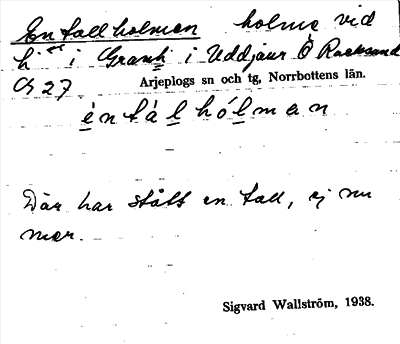 En tall holmen holme vid
h i Granh i Uddjaur Ö Racksund
27. Arjeplogs sn och tg, Norrbottens län.
èntálhólmen
Där har stått en tall, ej nu
mer.
Sigvard Wallström, 1938.